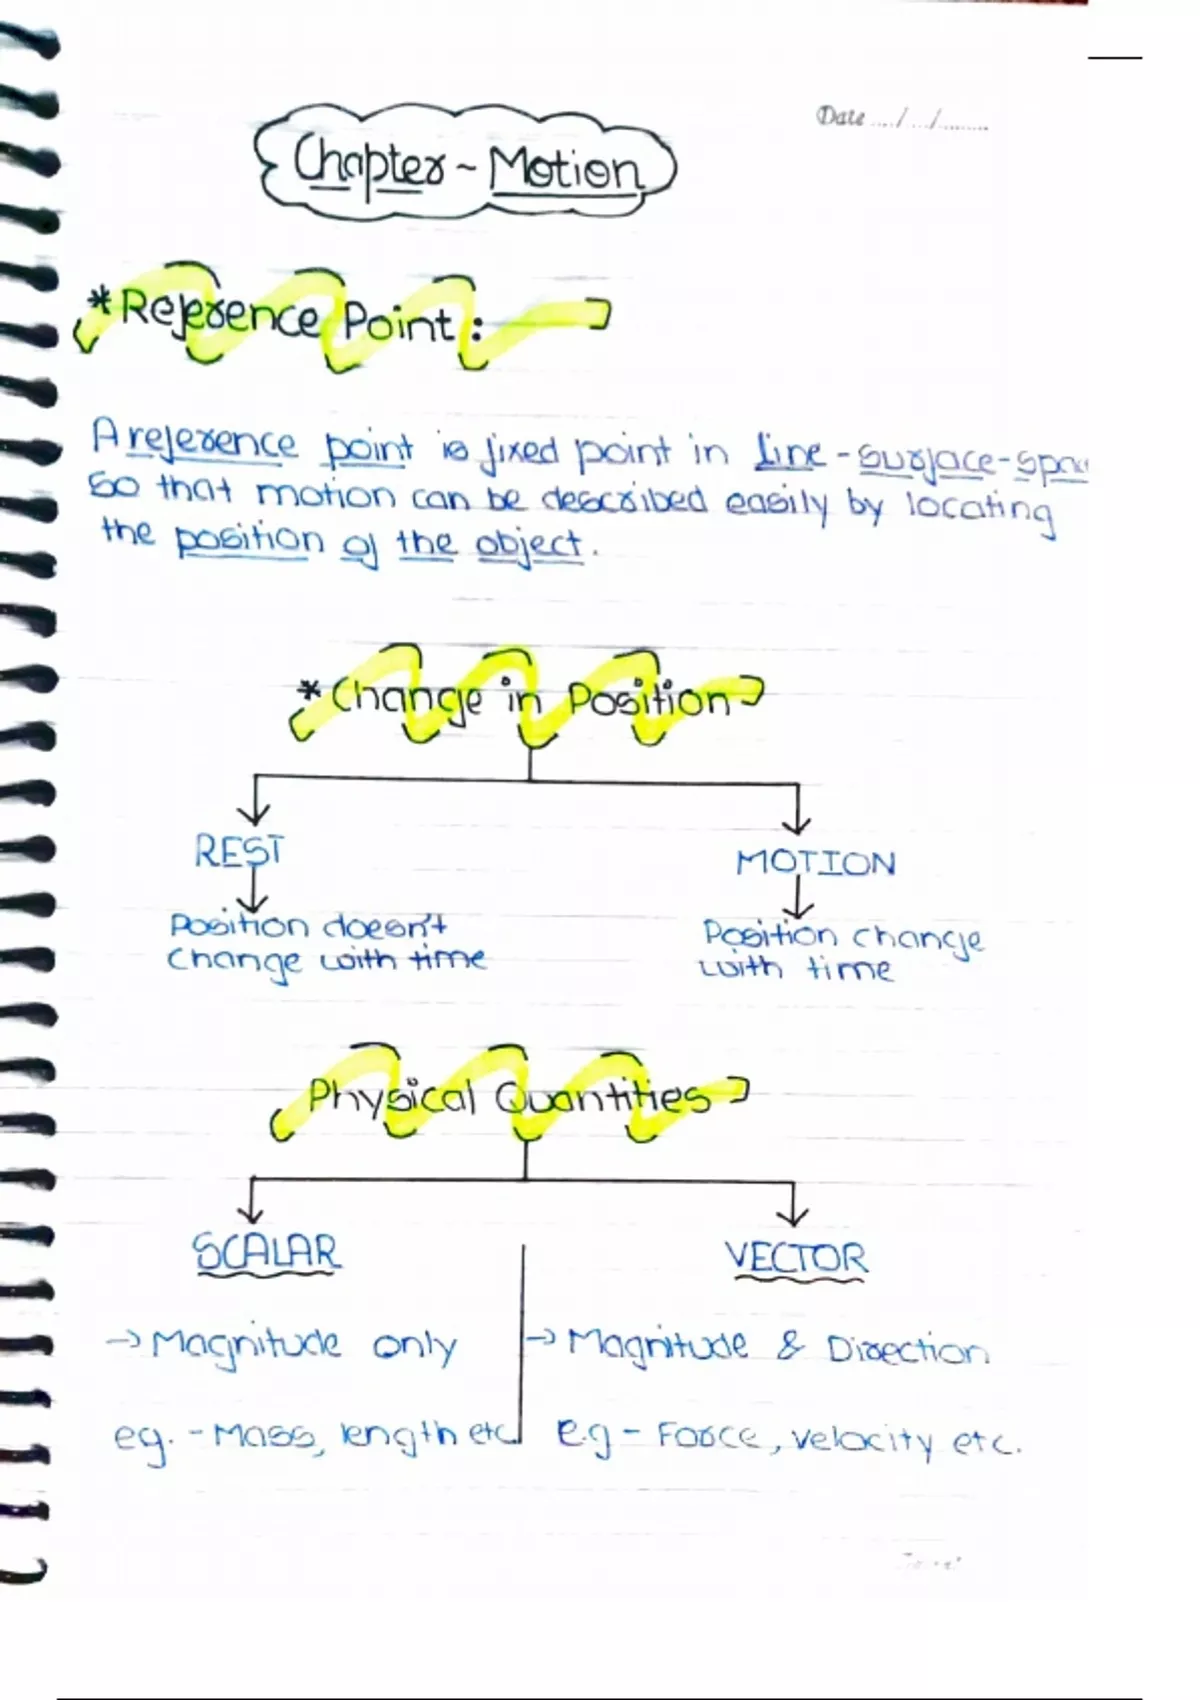 Date ..../..../.........
Chapter ~ Motion
*Reference Point :
A reference point is fixed point in line - surface -
So that motion can be described easily by locating
the position of the object.
*Change in Position
REST
MOTION
Position doesn't
change with time
Position change
with time
Physical Quantities
SCALAR
VECTOR
→ Magnitude only
→ Magnitude & Direction
eg. - Mass, length etc
e.g - Force, velocity etc.